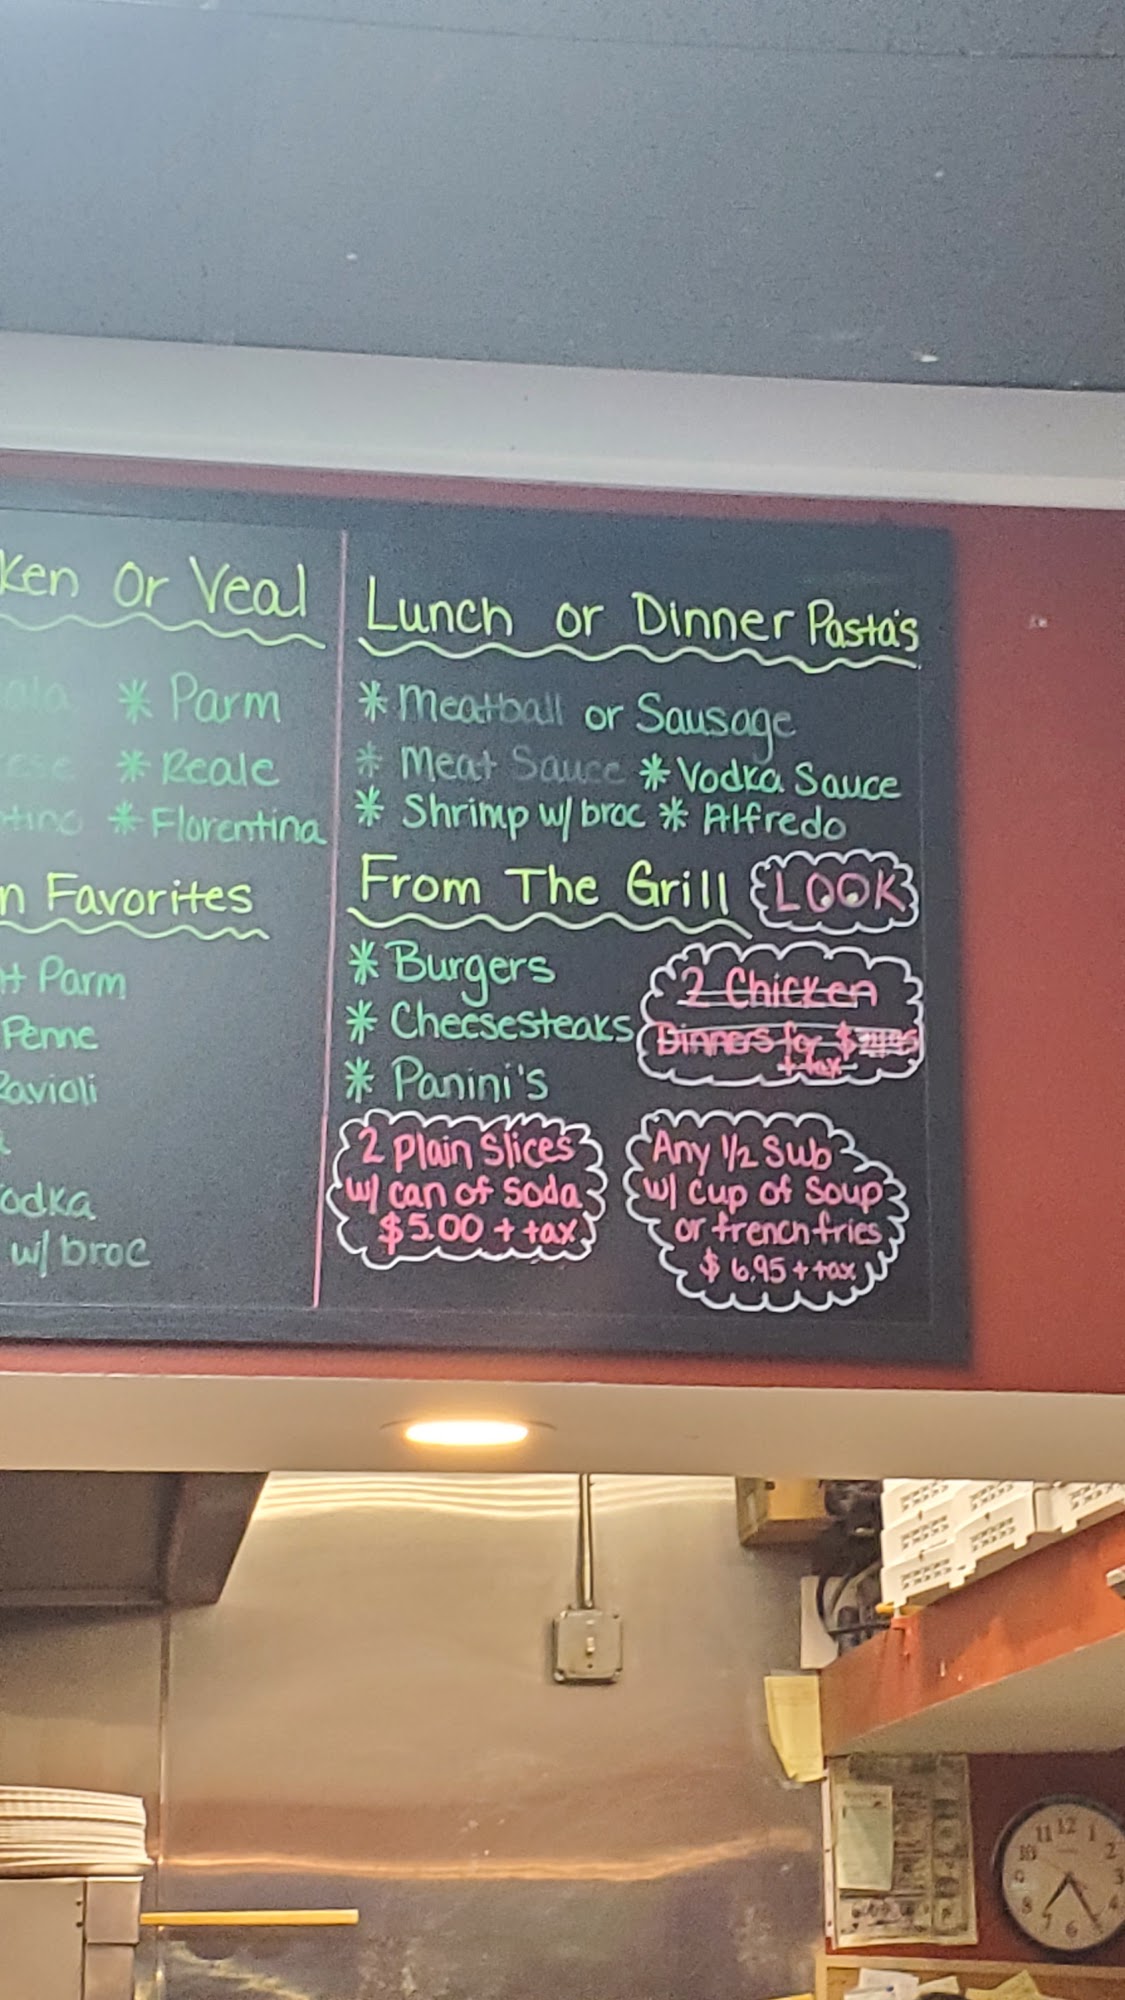 Ken Or Veal
* Parm
* Reale
* Florentina
n Favorites
Parm
Penne
Ravioli
w/ broc
Lunch or Dinner Pasta's
* Meatball or Sausage
* Meat Sauce * Vodka Sauce
* Shrimp w/ broc * Alfredo
From The Grill
LOOK
* Burgers
* Cheesesteaks
* Panini's
2 Chicken
Dinners for $
+ tax
2 Plain Slices
w/ can of Soda
$5.00 + tax
Any 1/2 Sub
w/ Cup of Soup
or french fries
$ 6.95 + tax
11 12 1
10 2
9 3
8 4
7 6